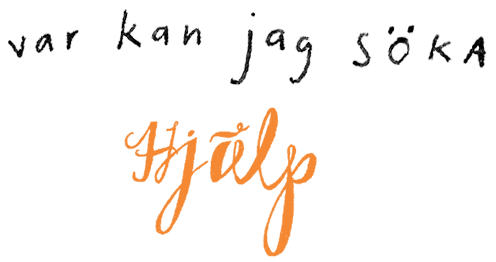 var kan jag SÖKA
Hjälp